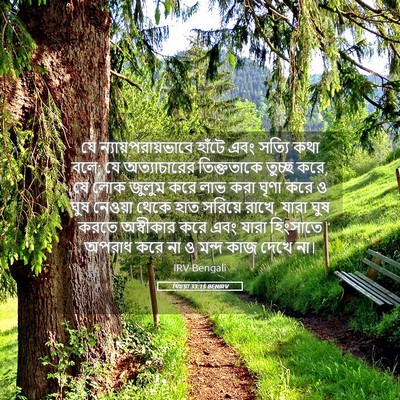 যে ন্যায়পরায়ভাবে হাঁটে এবং সত্যি কথা
বলে, যে অত্যাচারের তিক্ততাকে তুচ্ছ করে,
যে লোক জুলুম করে লাভ করা ঘৃণা করে ও
ঘুষ নেওয়া থেকে হাত সরিয়ে রাখে, যারা ঘুষ
করতে অস্বীকার করে এবং যারা হিংসাতে
অপরাধ করে না ও মন্দ কাজ দেখে না।
IRV-Bengali